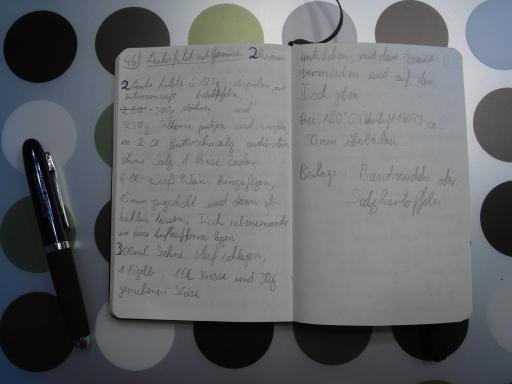 46) Lachsfilet mit Gemüse 2 Personen
2 Lachsfilets à 125g abspülen, mit
Zitronensaft beträufeln
250 300g Möhren und
250g Sellerie putzen und würfeln,
in 2 EL Butterschmalz andünsten
etwas Salz, 1 Prise Zucker,
6 EL Weißwein hinzufügen,
15 min zugedeckt und dann ab-
kühlen lassen, Fisch nebeneinander
in eine Auflaufform legen
300ml Sahne steif schlagen,
1 Eigelb, 1 EL Kresse und 30g
geriebenen Käse
unterheben, mit dem Gemüse
vermischen und auf den
Fisch geben
Bei 180°C (Umluft 160°C) ca.
30min überbacken
Beilage: Bandnudeln oder
Salzkartoffeln